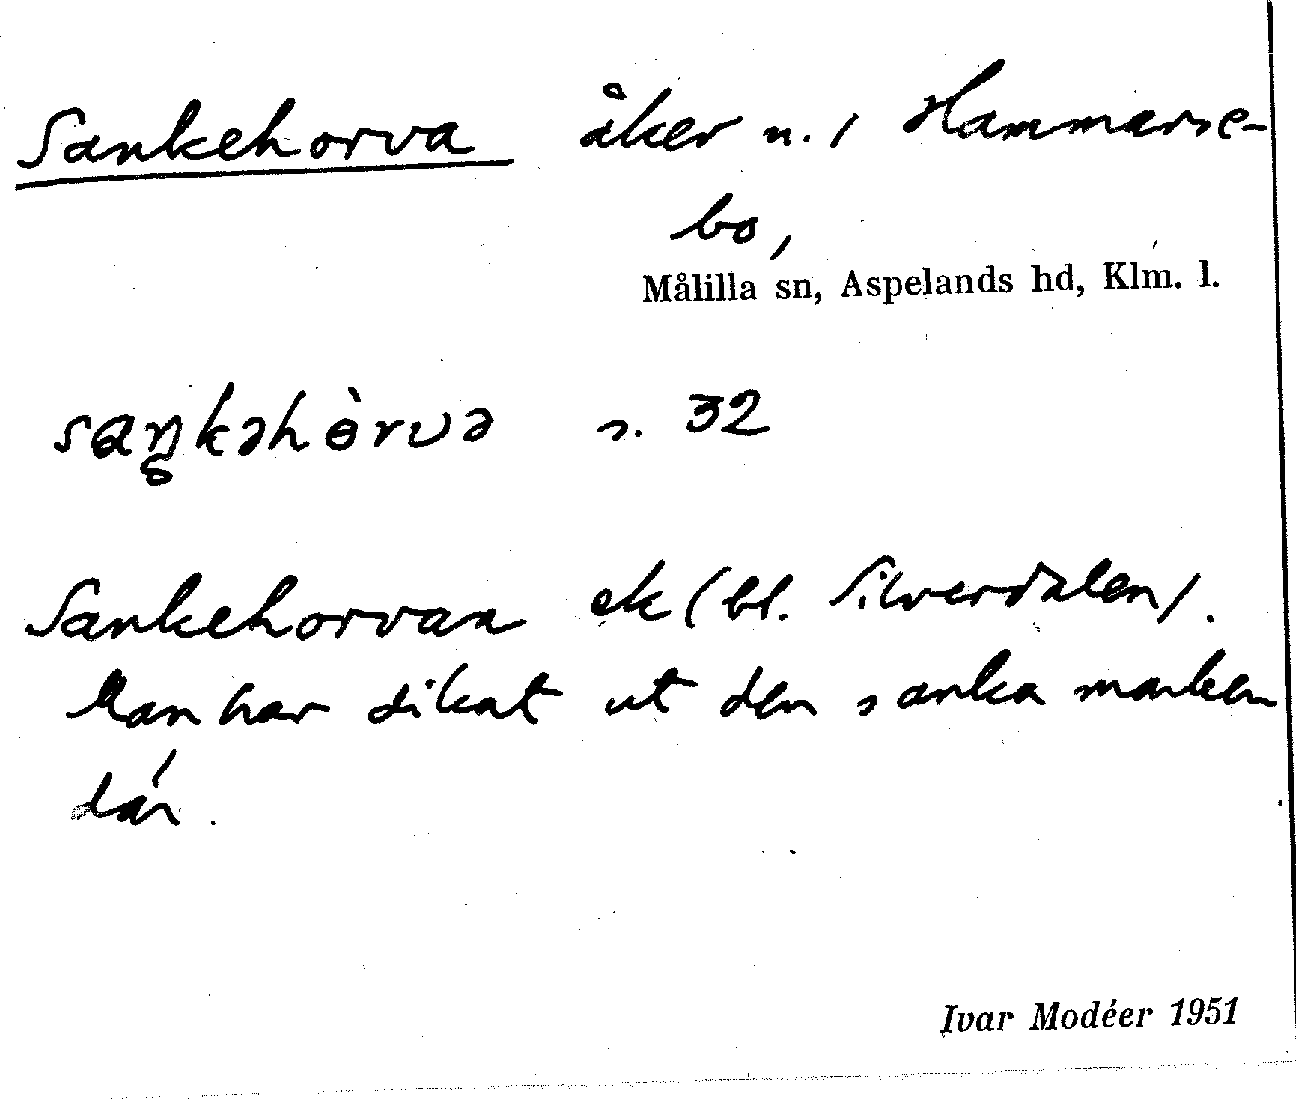 Sankehorva åker n. / Hammarse-
bo,
Målilla sn, Aspelands hd, Klm. l.
saŋkəhɵ̀rvə s. 32
Sankehorvan ek (bl. Silverdalen).
Man har dikat ut den sanka marken
där.
Ivar Modéer 1951